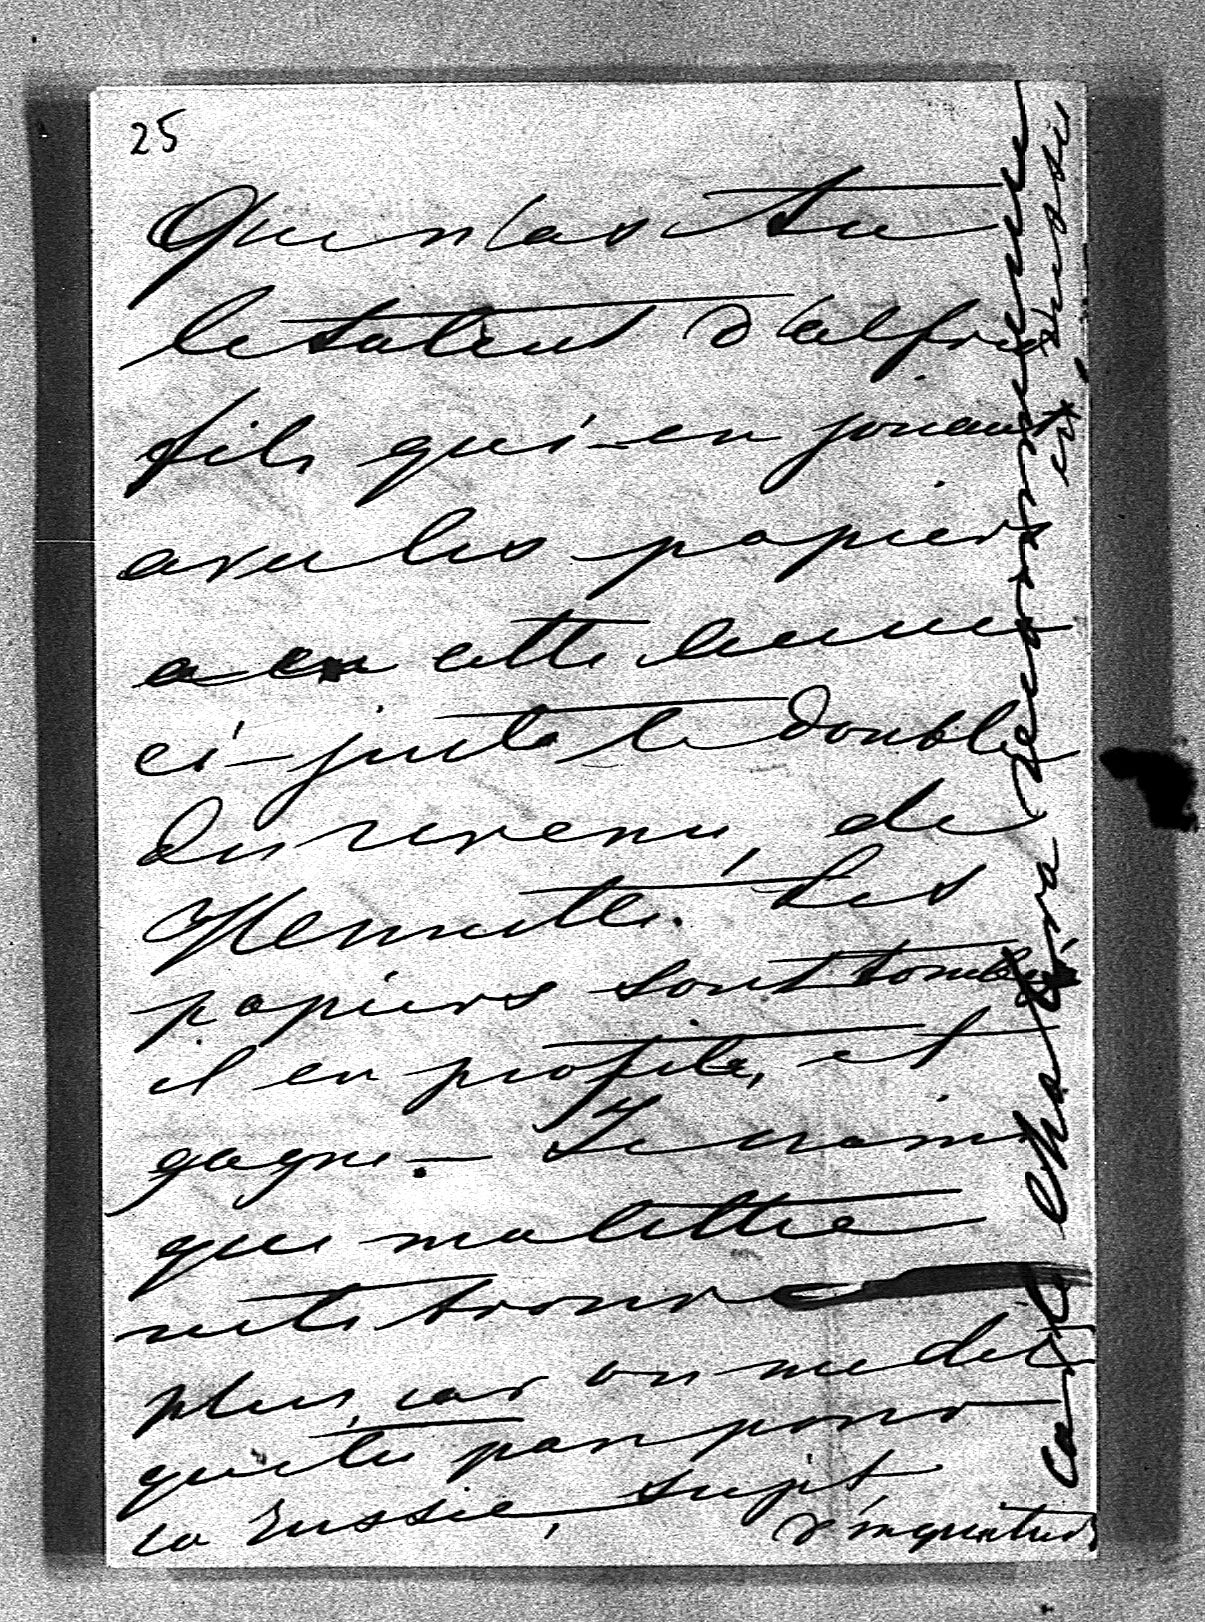 25
Que n'as tu
le talent d'alfred
fils qui en jouant
avec les papiers
a eu cette année
ci juste le double
du revenu de
Henriette. Les
papiers sont tombés
il en profite, et
gagne. Je crains
que ma lettre
ne te trouve
plus, car on me dit
que tu pars pour
la Russie, sujet
d'inquiétude
car le choléra recommence
en Russie